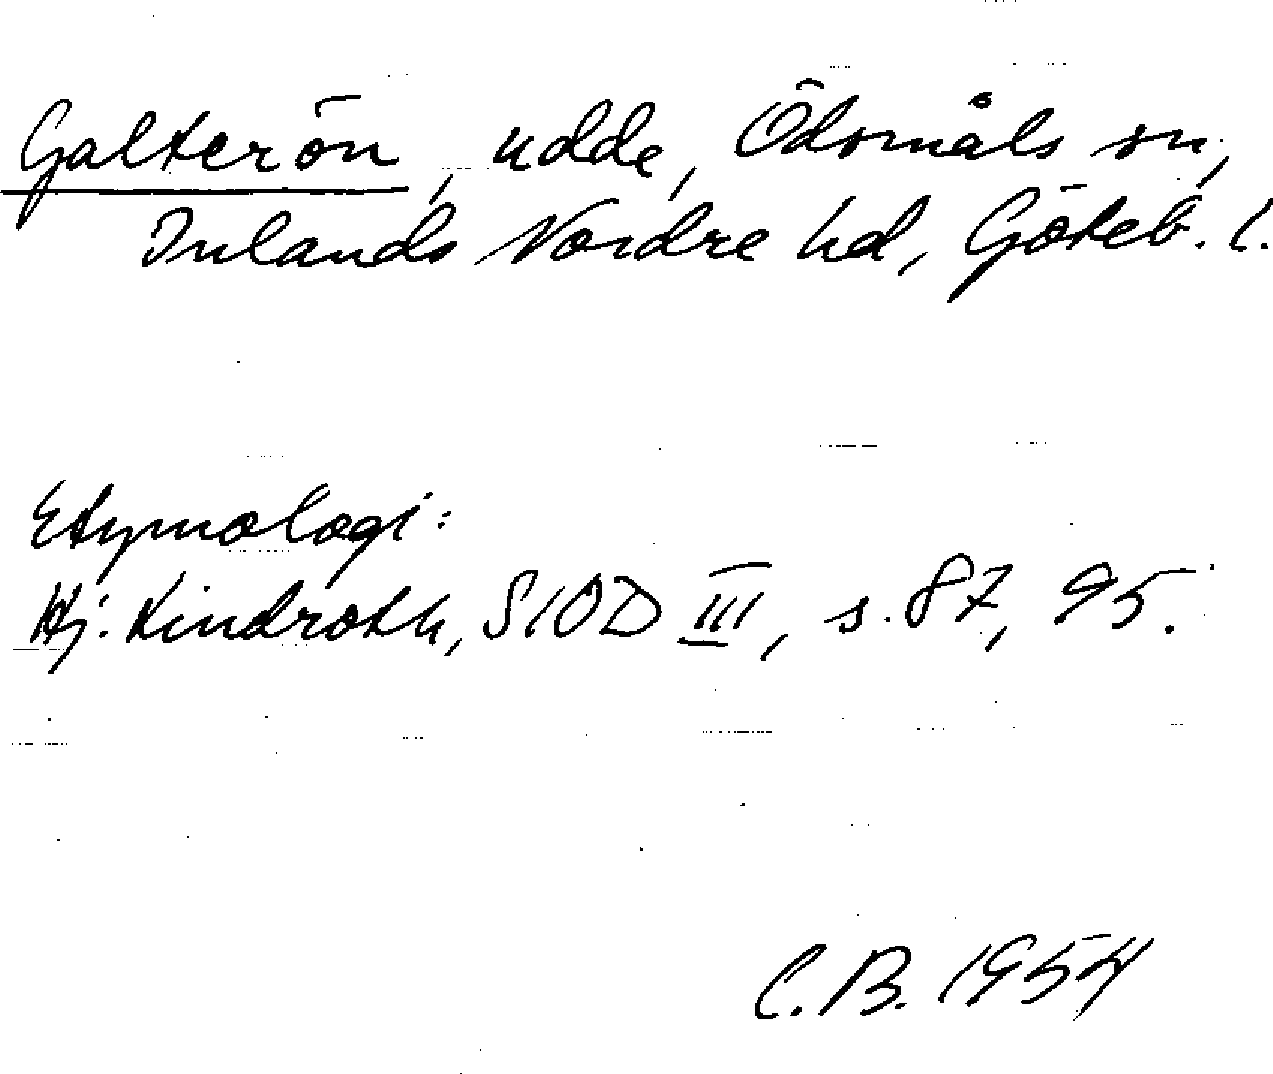 Galterön, udde, Ödsmåls sn,
Inlands Nordre hd, Göteb. l.
Etymologi:
Hj. Lindroth, SIOD III, s. 87, 95.
C. B. 1954